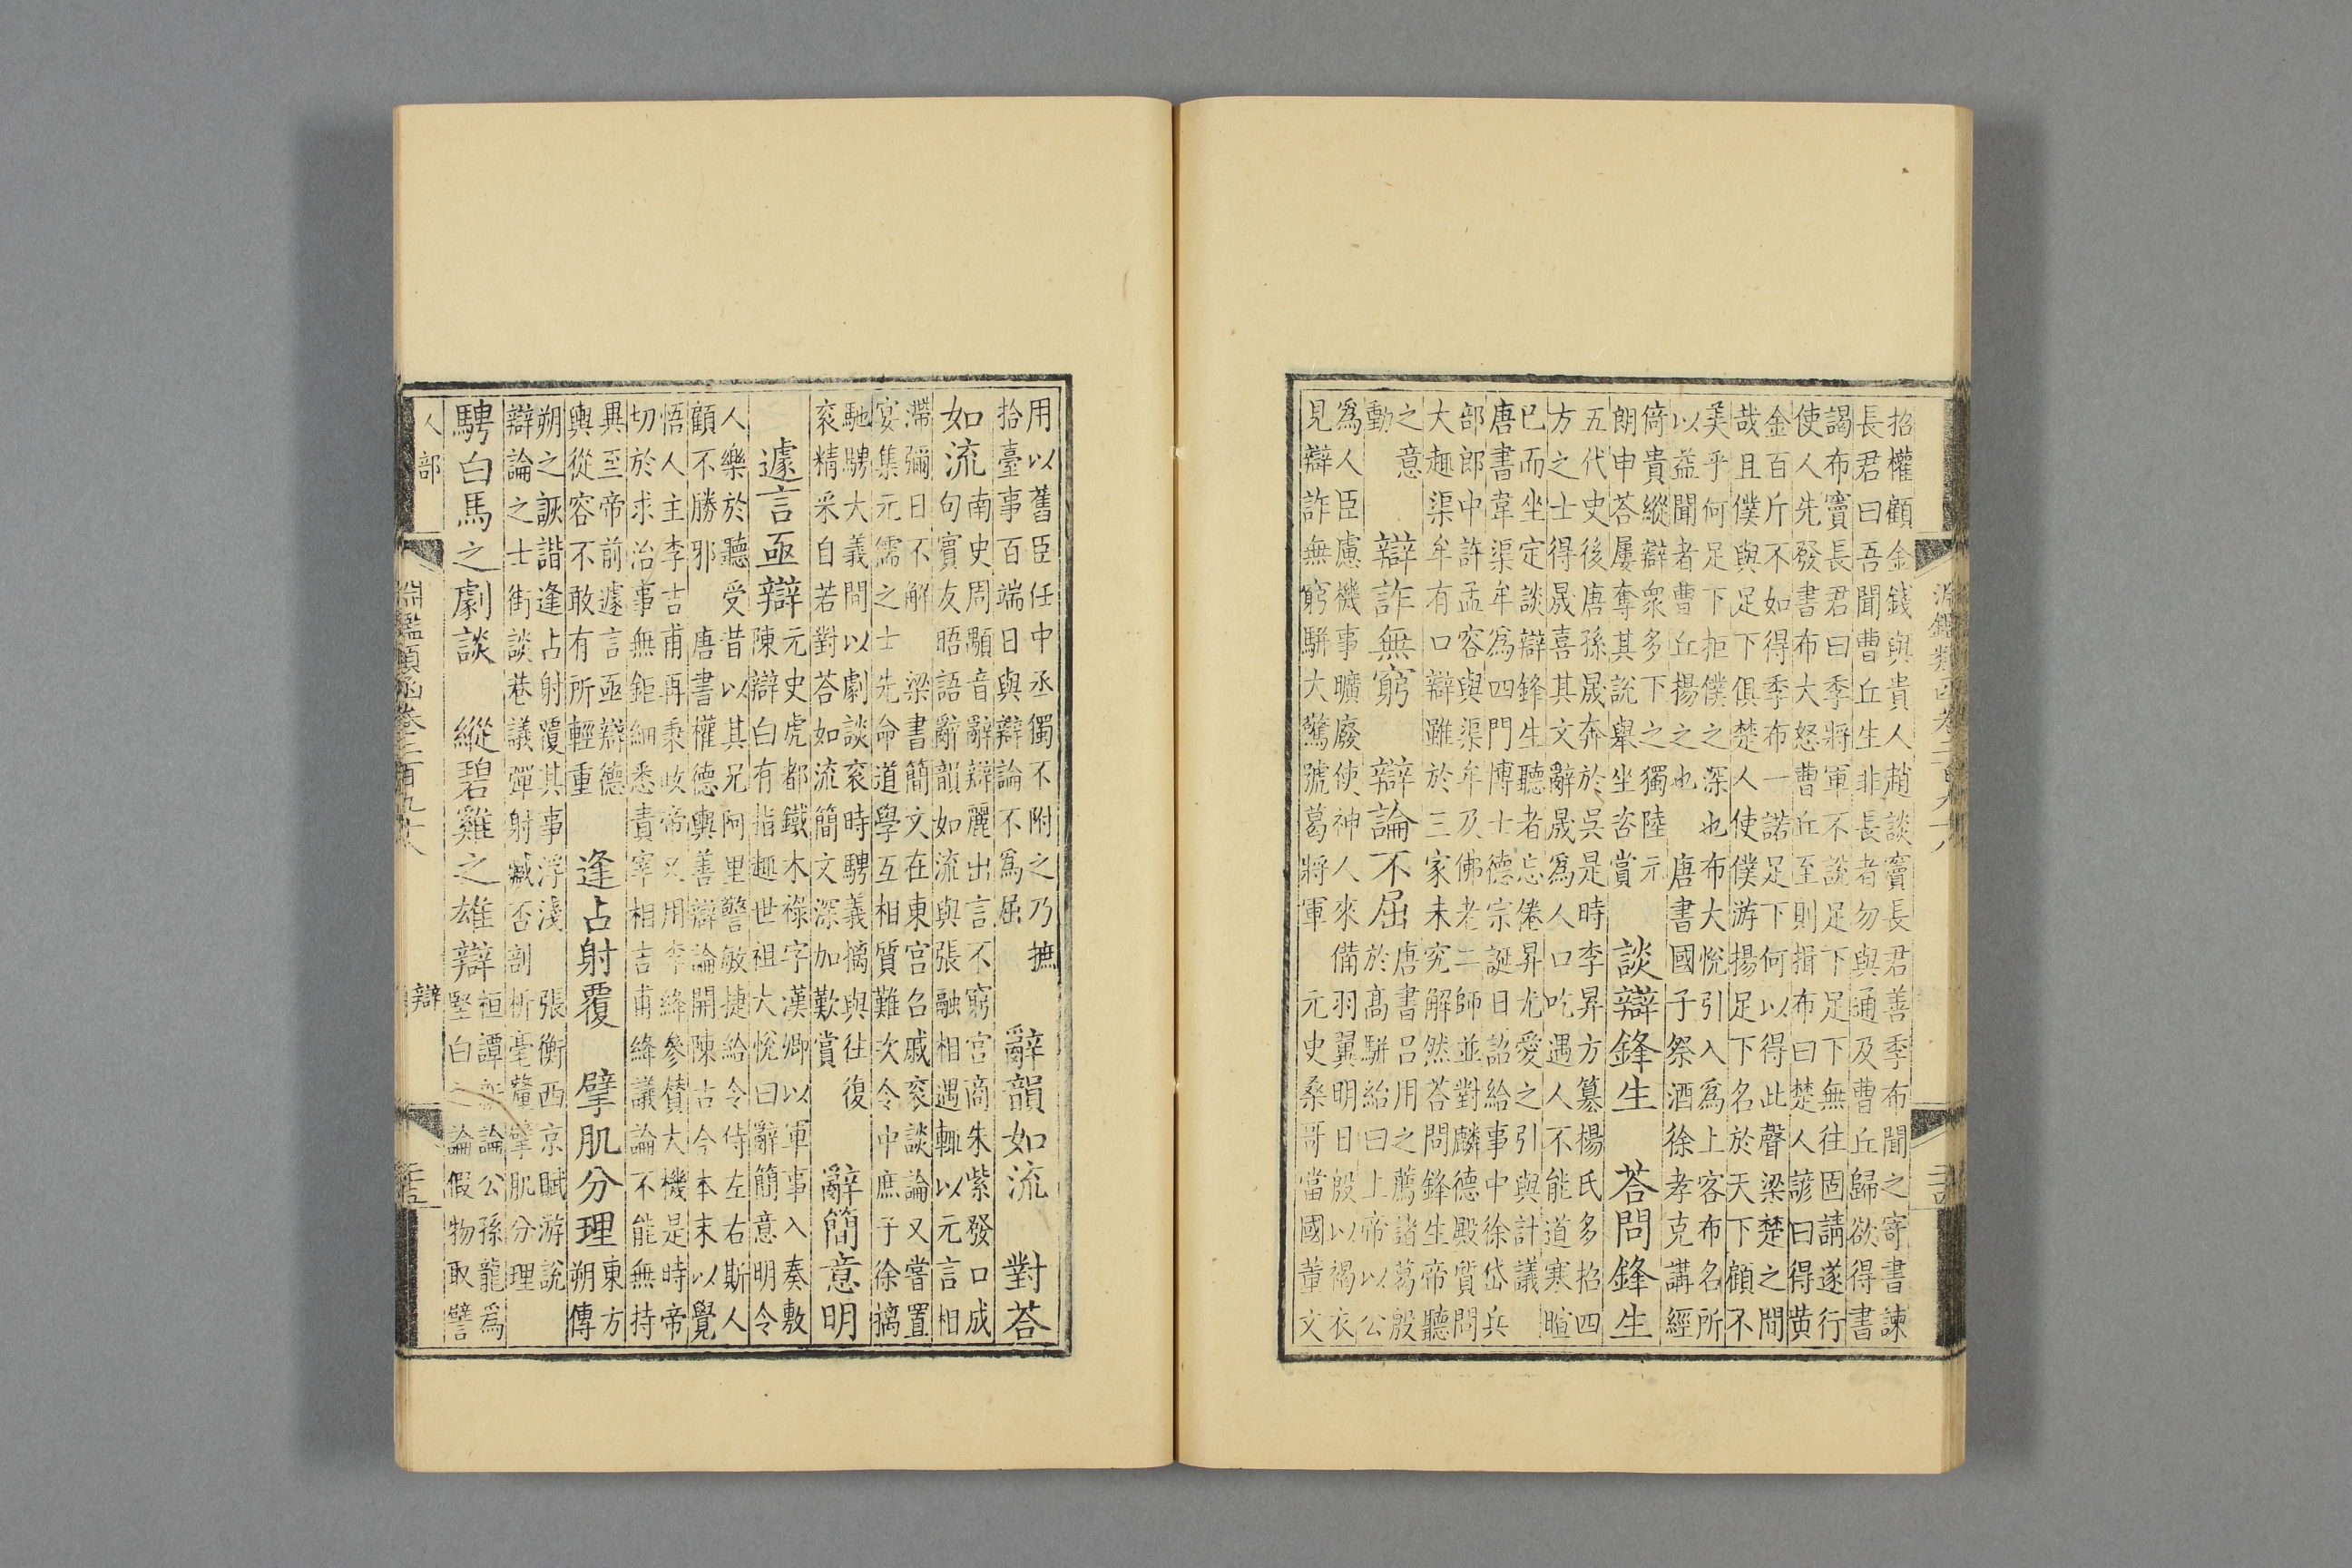 淵鑑類函卷二百九十八
招權顧金錢與貴人趙談竇長君善季布聞之寄書諫
長君曰吾聞曹丘生非長者勿與通及曹丘歸欲得書
謁布竇長君曰季將軍不說足下足下無往固請遂行
使人先發書布大怒曹丘至則揖布曰楚人諺曰得黄
金百斤不如得季布一諾足下何以得此聲梁楚之間
哉且僕與足下俱楚人使僕游揚足下名於天下顧不
美乎何足下拒僕之深也布大悅引入爲上客布名所
以益聞者曹丘揚之也 唐書國子祭酒徐孝克講經
倚貴縱辯衆多下之獨陸元
朗申荅屢奪其說舉坐咨賞
談辯鋒生 荅問鋒生
五代史後唐孫晟奔於吳是時李昇方篡楊氏多招四
方之士得晟喜其文辭晟爲人口吃遇人不能道寒暄
已而坐定談辯鋒生聽者忘倦昇尤愛之引與計議
唐書韋渠牟爲四門博士德宗誕日詔給事中徐岱兵
部郎中許孟容與渠牟及佛老二師並對麟德殿質問
大趣渠牟有口辯雖於三家未究解然荅問鋒生帝聽
之意
動
辯詐無窮 辯論不屈
唐書呂用之薦諸葛殷
於高駢紿曰上帝以公
爲人臣慮機事曠廢使神人來備羽翼明日殷以褐衣
見辯詐無窮駢大驚號葛將軍 元史桑哥當國董文
用以舊臣任中丞獨不附之乃摭
拾臺事百端日與辯論不爲屈
辭韻如流 對荅
如流
南史周顒音辭辯麗出言不窮宮商朱紫發口成
句賓友晤語辭韻如流與張融相遇輒以元言相
滯彌日不解 梁書簡文在東宮召戚袞談論又嘗置
宴集元儒之士先命道學互相質難次令中庶子徐摛
馳騁大義間以劇談袞時騁義摛與往復
袞精采自若對荅如流簡文深加歎賞
辭簡意明
遽言亟辯
元史虎都鐵木祿字漢卿以軍事入奏敷
陳辯白有指趣世祖大悅曰辭簡意明令
人樂於聽受昔以其兄阿里警敏捷給令侍左右斯人
顧不勝邪 唐書權德輿善辯論開陳古今本末以覺
悟人主李吉甫再秉政帝又用李絳參贊大機是時帝
切於求治事無鉅細悉責宰相吉甫絳議論不能無持
異至帝前遽言亟辯德
輿從容不敢有所輕重
逢占射覆 擘肌分理
東方
朔傳
朔之詼諧逢占射覆其事浮淺 張衡西京賦游說
辯論之士街談巷議彈射臧否剖析毫釐擘肌分理
騁白馬之劇談 縱碧雞之雄辯
桓譚新論公孫龍爲
堅白之論假物取譬
人部
辯
淵鑑類函卷二百九十八